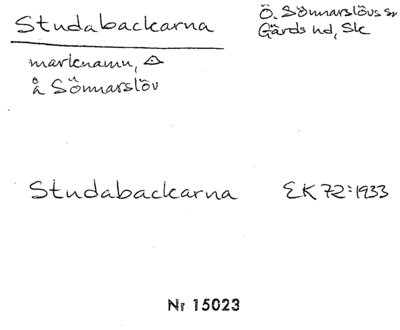 Studabackarna
Ö. Sönnarslövs sn
Gärds hd, Sk
marknamn,
å Sönnarslöv
Studabackarna EK 72:1933
Nr 15023